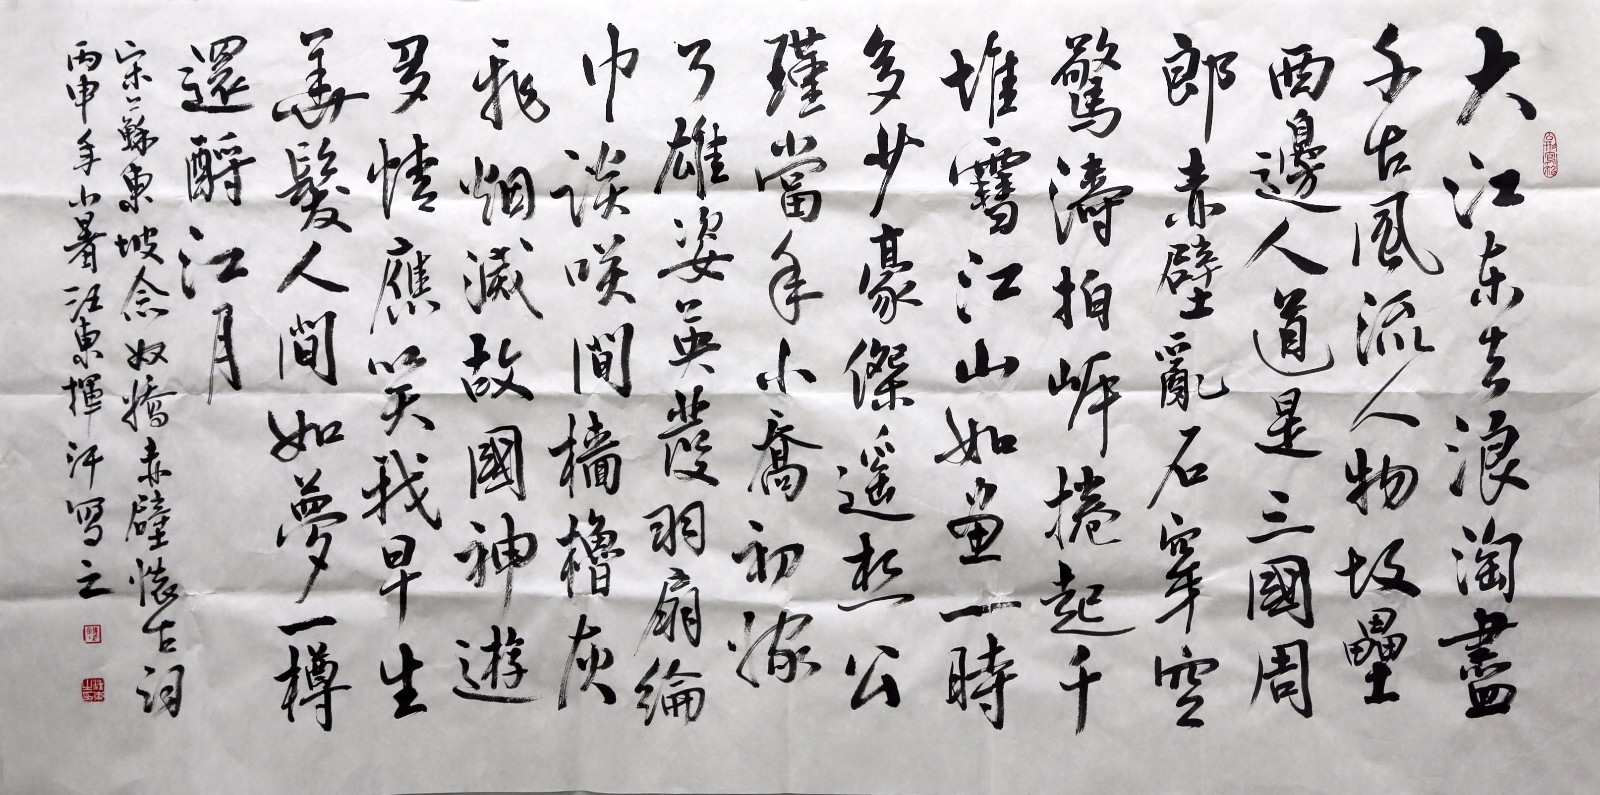 大江东去浪淘盡
千古風流人物故壘
西邊人道是三國周
郎赤壁亂石穿空
驚濤拍岸捲起千
堆雪江山如畫一時
多少豪傑遥想公
瑾當年小喬初嫁
了雄姿英發羽扇綸
巾談咲間檣櫓灰
飛烟滅故國神遊
多情應笑我早生
華髮人間如夢一樽
還酹江月
宋蘇東坡念奴嬌赤壁懷古詞
丙申年小暑汪東揮汗寫之